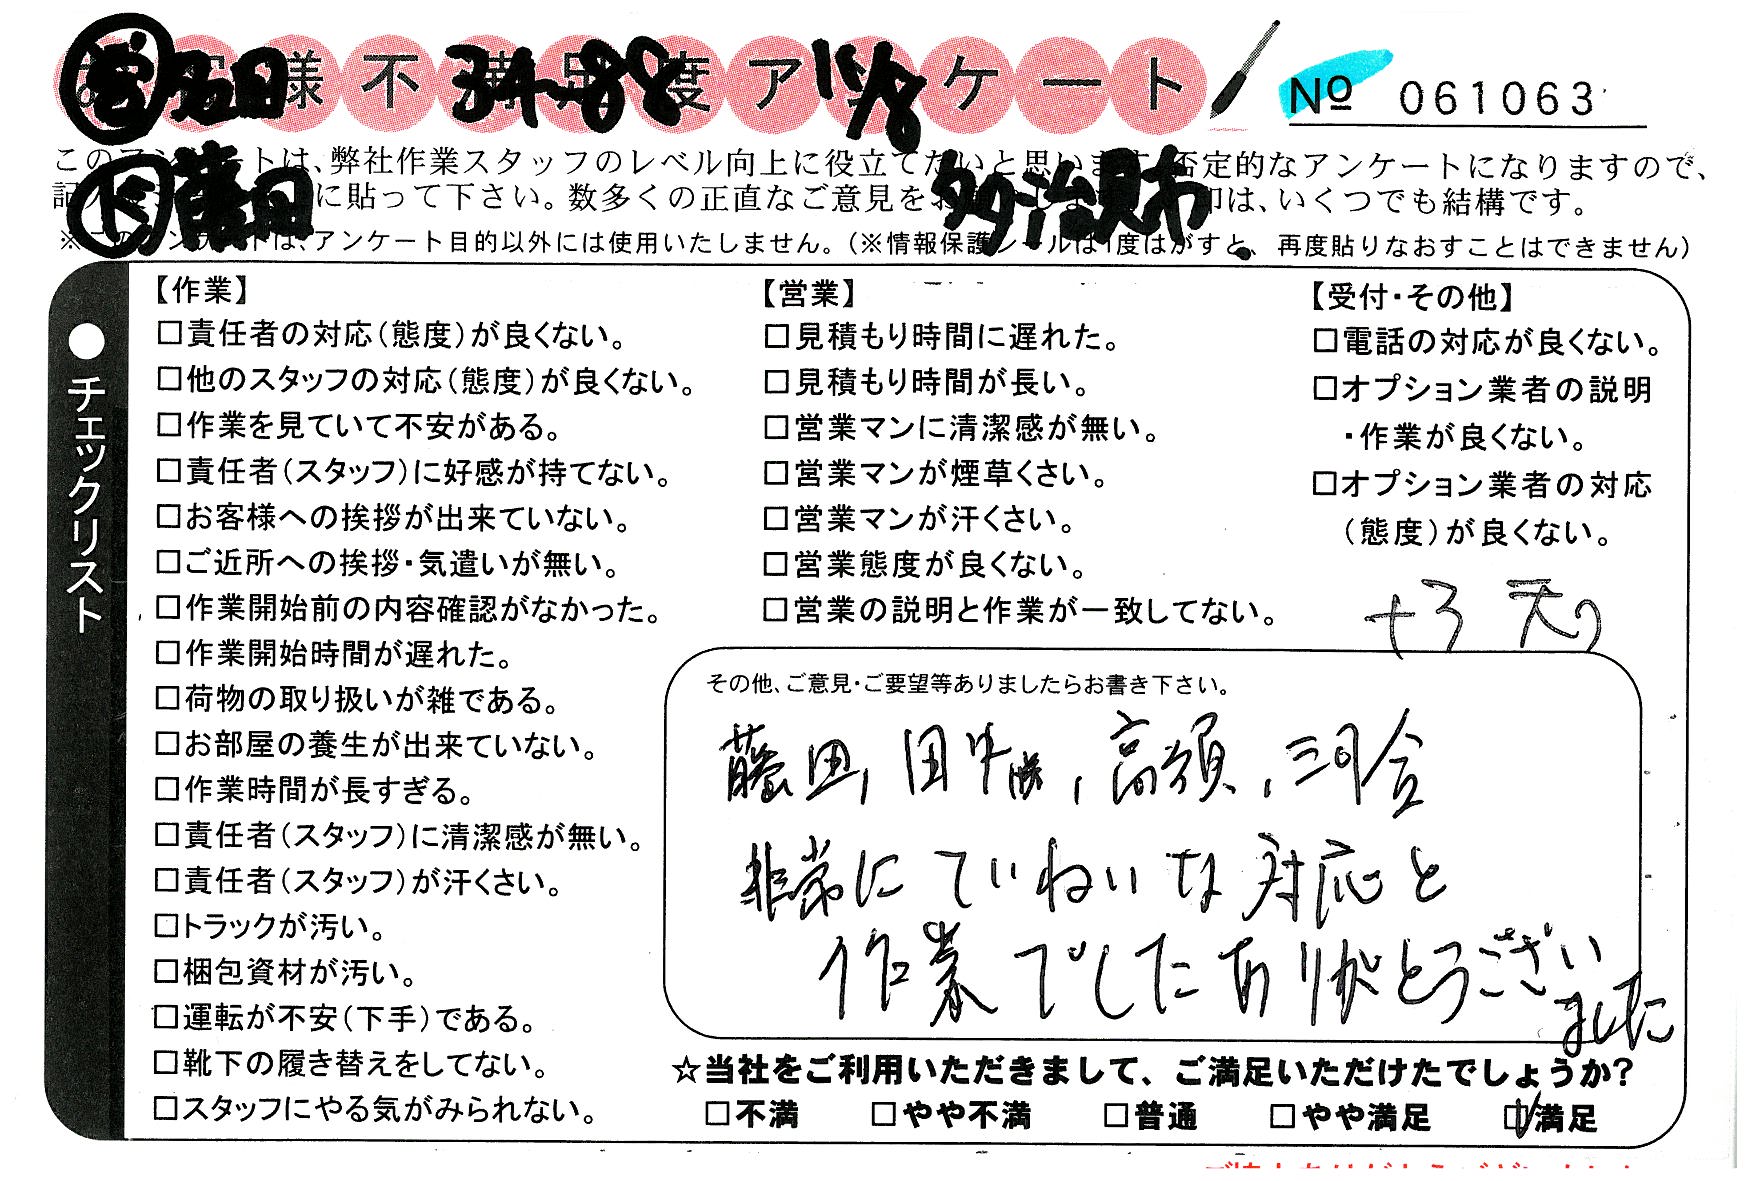 お客様不満足度アンケート
No 061063
営 名田 34-88 15/8
下 藤田 多治見市
このアンケートは、弊社作業スタッフのレベル向上に役立てたいと思います。否定的なアンケートになりますので、
に貼って下さい。数多くの正直なご意見をお は、いくつでも結構です。
※このアンケートは、アンケート目的以外には使用いたしません。(※情報保護シールは1度はがすと、再度貼りなおすことはできません)
●チェックリスト
【作業】
□責任者の対応(態度)が良くない。
□他のスタッフの対応(態度)が良くない。
□作業を見ていて不安がある。
□責任者(スタッフ)に好感が持てない。
□お客様への挨拶が出来ていない。
□ご近所への挨拶・気遣いが無い。
□作業開始前の内容確認がなかった。
□作業開始時間が遅れた。
□荷物の取り扱いが雑である。
□お部屋の養生が出来ていない。
□作業時間が長すぎる。
□責任者(スタッフ)に清潔感が無い。
□責任者(スタッフ)が汗くさい。
□トラックが汚い。
□梱包資材が汚い。
□運転が不安(下手)である。
□靴下の履き替えをしてない。
□スタッフにやる気がみられない。
【営業】
□見積もり時間に遅れた。
□見積もり時間が長い。
□営業マンに清潔感が無い。
□営業マンが煙草くさい。
□営業マンが汗くさい。
□営業態度が良くない。
□営業の説明と作業が一致してない。
【受付・その他】
□電話の対応が良くない。
□オプション業者の説明
・作業が良くない。
□オプション業者の対応
(態度)が良くない。
その他、ご意見・ご要望等ありましたらお書き下さい。
藤田, 田中, 高須, 河合
非常にていねいな対応と
作業でした ありがとうござい
ました
☆当社をご利用いただきまして、ご満足いただけたでしょうか?
□不満 □やや不満 □普通 □やや満足 ☑満足